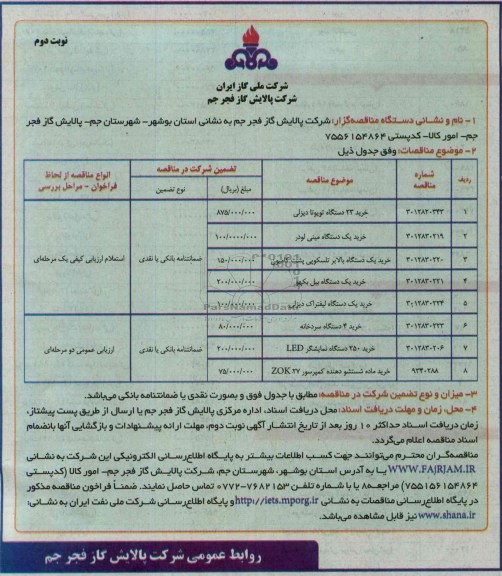 نوبت دوم
شرکت ملی گاز ایران
شرکت پالایش گاز فجر جم
۱- نام و نشانی دستگاه مناقصه‌گزار: شرکت پالایش گاز فجر جم به نشانی استان بوشهر- شهرستان جم- پالایش گاز فجر
جم- امور کالا- کدپستی ۷۵۵۶۱۵۴۸۶۴
۲- موضوع مناقصات: وفق جدول ذیل
ردیف شماره مناقصه موضوع مناقصه تضمین شرکت در مناقصه مبلغ (ریال) نوع تضمین انواع مناقصه از لحاظ فراخوان - مراحل بررسی
۱ ۳۰۱۲۸۲۰۳۴۳ خرید ۲۳ دستگاه تویوتا دیزلی ۸۷۵/۰۰۰/۰۰۰
۲ ۳۰۱۲۸۳۰۲۱۹ خرید یک دستگاه مینی لودر ۱۰۰/۰۰۰۰/۰۰۰
۳ ۳۰۱۲۸۳۰۲۲۰ خرید یک دستگاه بالابر تلسکوپی پشت کامیون ۱۵۰/۰۰۰/۰۰۰ ضمانتنامه بانکی یا نقدی استعلام ارزیابی کیفی یک مرحله‌ای
۴ ۳۰۱۲۸۳۰۲۲۱ خرید یک دستگاه بیل بکهو ۲۰۰/۰۰۰/۰۰۰
۵ ۳۰۱۲۸۳۰۲۲۴ خرید یک دستگاه لیفتراک دیزلی ۱۰۰/۰۰۰/۰۰۰
۶ ۳۰۱۲۸۳۰۲۲۳ خرید ۴ دستگاه سردخانه ۸۰/۰۰۰/۰۰۰
۷ ۳۰۱۲۸۳۰۲۰۶ خرید ۲۵۰ دستگاه نمایشگر LED ۲۰۰/۰۰۰/۰۰۰ ضمانتنامه بانکی یا نقدی ارزیابی عمومی دو مرحله‌ای
۸ ۹۳۴۰۲۸۸ خرید ماده شستشو دهنده کمپرسور ZOK ۲۷ ۷۵/۰۰۰/۰۰۰
ParsNamadData
۳- میزان و نوع تضمین شرکت در مناقصه: مطابق با جدول فوق و بصورت نقدی یا ضمانتنامه بانکی می‌باشد.
۴- محل، زمان و مهلت دریافت اسناد: محل دریافت اسناد، اداره مرکزی پالایش گاز فجر جم یا ارسال از طریق پست پیشتاز،
زمان دریافت اسناد حداکثر ۱۰ روز بعد از تاریخ انتشار آگهی نوبت دوم، مهلت ارائه پیشنهادات و بازگشایی آنها بانضمام
اسناد مناقصه اعلام می‌گردد.
مناقصه‌گران محترم می‌توانند جهت کسب اطلاعات بیشتر به پایگاه اطلاع‌رسانی الکترونیکی این شرکت به نشانی
WWW.FAJRJAM.IR یا به آدرس استان بوشهر، شهرستان جم، شرکت پالایش گاز فجر جم- امور کالا (کدپستی
۷۵۵۶۱۵۴۸۶۴) مراجعه یا با شماره تلفن ۷۶۸۲۱۵۳-۰۷۷۲ تماس حاصل نمایند. ضمناً فراخوان مناقصه مذکور
در پایگاه اطلاع‌رسانی مناقصات به نشانی http://iets.mporg.ir و پایگاه اطلاع‌رسانی شرکت ملی نفت ایران به نشانی:
www.shana.ir نیز قابل مشاهده می‌باشد.
روابط عمومی شرکت پالایش گاز فجر جم